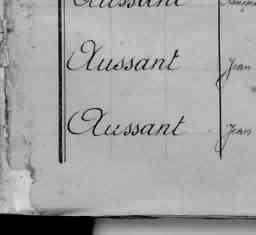 Aussant
Aussant Jean
Aussant Jean